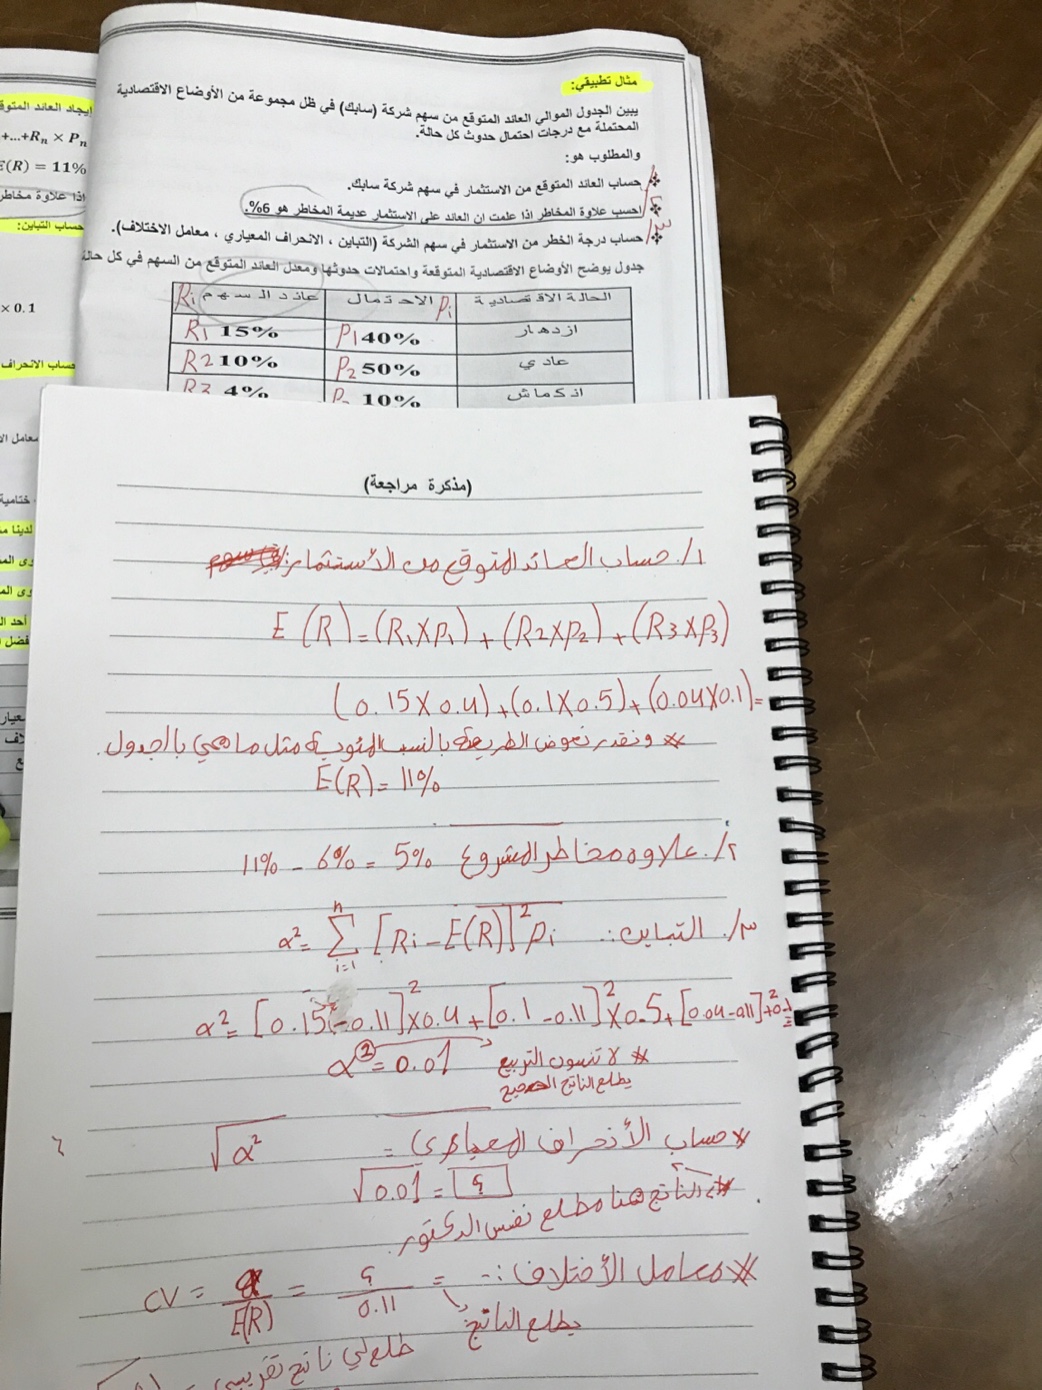 مثال تطبيقي:
يبين الجدول الموالي العائد المتوقع من سهم شركة (سابك) في ظل مجموعة من الأوضاع الاقتصادية
المحتملة مع درجات احتمال حدوث كل حالة.
والمطلوب هو:
حساب العائد المتوقع من الاستثمار في سهم شركة سابك.
احسب علاوة المخاطر اذا علمت ان العائد على الاستثمار عديمة المخاطر هو 6%.
حساب درجة الخطر من الاستثمار في سهم الشركة (التباين ، الانحراف المعياري ، معامل الاختلاف).
جدول يوضح الأوضاع الاقتصادية المتوقعة واحتمالات حدوثها ومعدل العائد المتوقع من السهم في كل حالة
الحالة الاقتصادية الاحتمال Pi عائد السهم Ri
ازدهار P1 40% R1 15%
عادي P2 50% R2 10%
انكماش 10% R3 4%
إيجاد العائد المتوقع
+...+Rn × Pn
E(R) = 11%
اذا علاوة مخاطر
حساب التباين:
× 0.1
حساب الانحراف
معامل
ختامية
لدينا
(مذكرة مراجعة)
١/. حساب العائد المتوقع من الأستثمار:
E(R)=(R1Xp1)+(R2Xp2)+(R3Xp3)
(0.15X0.4)+(0.1X0.5)+(0.04X0.1)=
* ونقدر نعوض الطريقة بالنسب المئوية مثل ماهي بالجدول.
E(R)= 11%
٢/. علاوه مخاطر المشروع 11% - 6% = 5%
٣/. التباين:. α²= n ∑ i=1 [Ri-E(R)]² Pi
α²= [0.15-0.11]²X0.4+[0.1-0.11]²X0.5+[0.04-0.11]²+0.1=
α²=0.01 * لا تنسون التربيع
يطلع الناتج الصحيح
* حساب الأنحراف المعياري:= √α²
√0.01 = ؟
* الناتج هنا مطلع نفس الدكتور.
* معامل الأختلاف:- = CV = α/E(R) = ؟/0.11
يطلع الناتج
طلع لي ناتج تقريبي